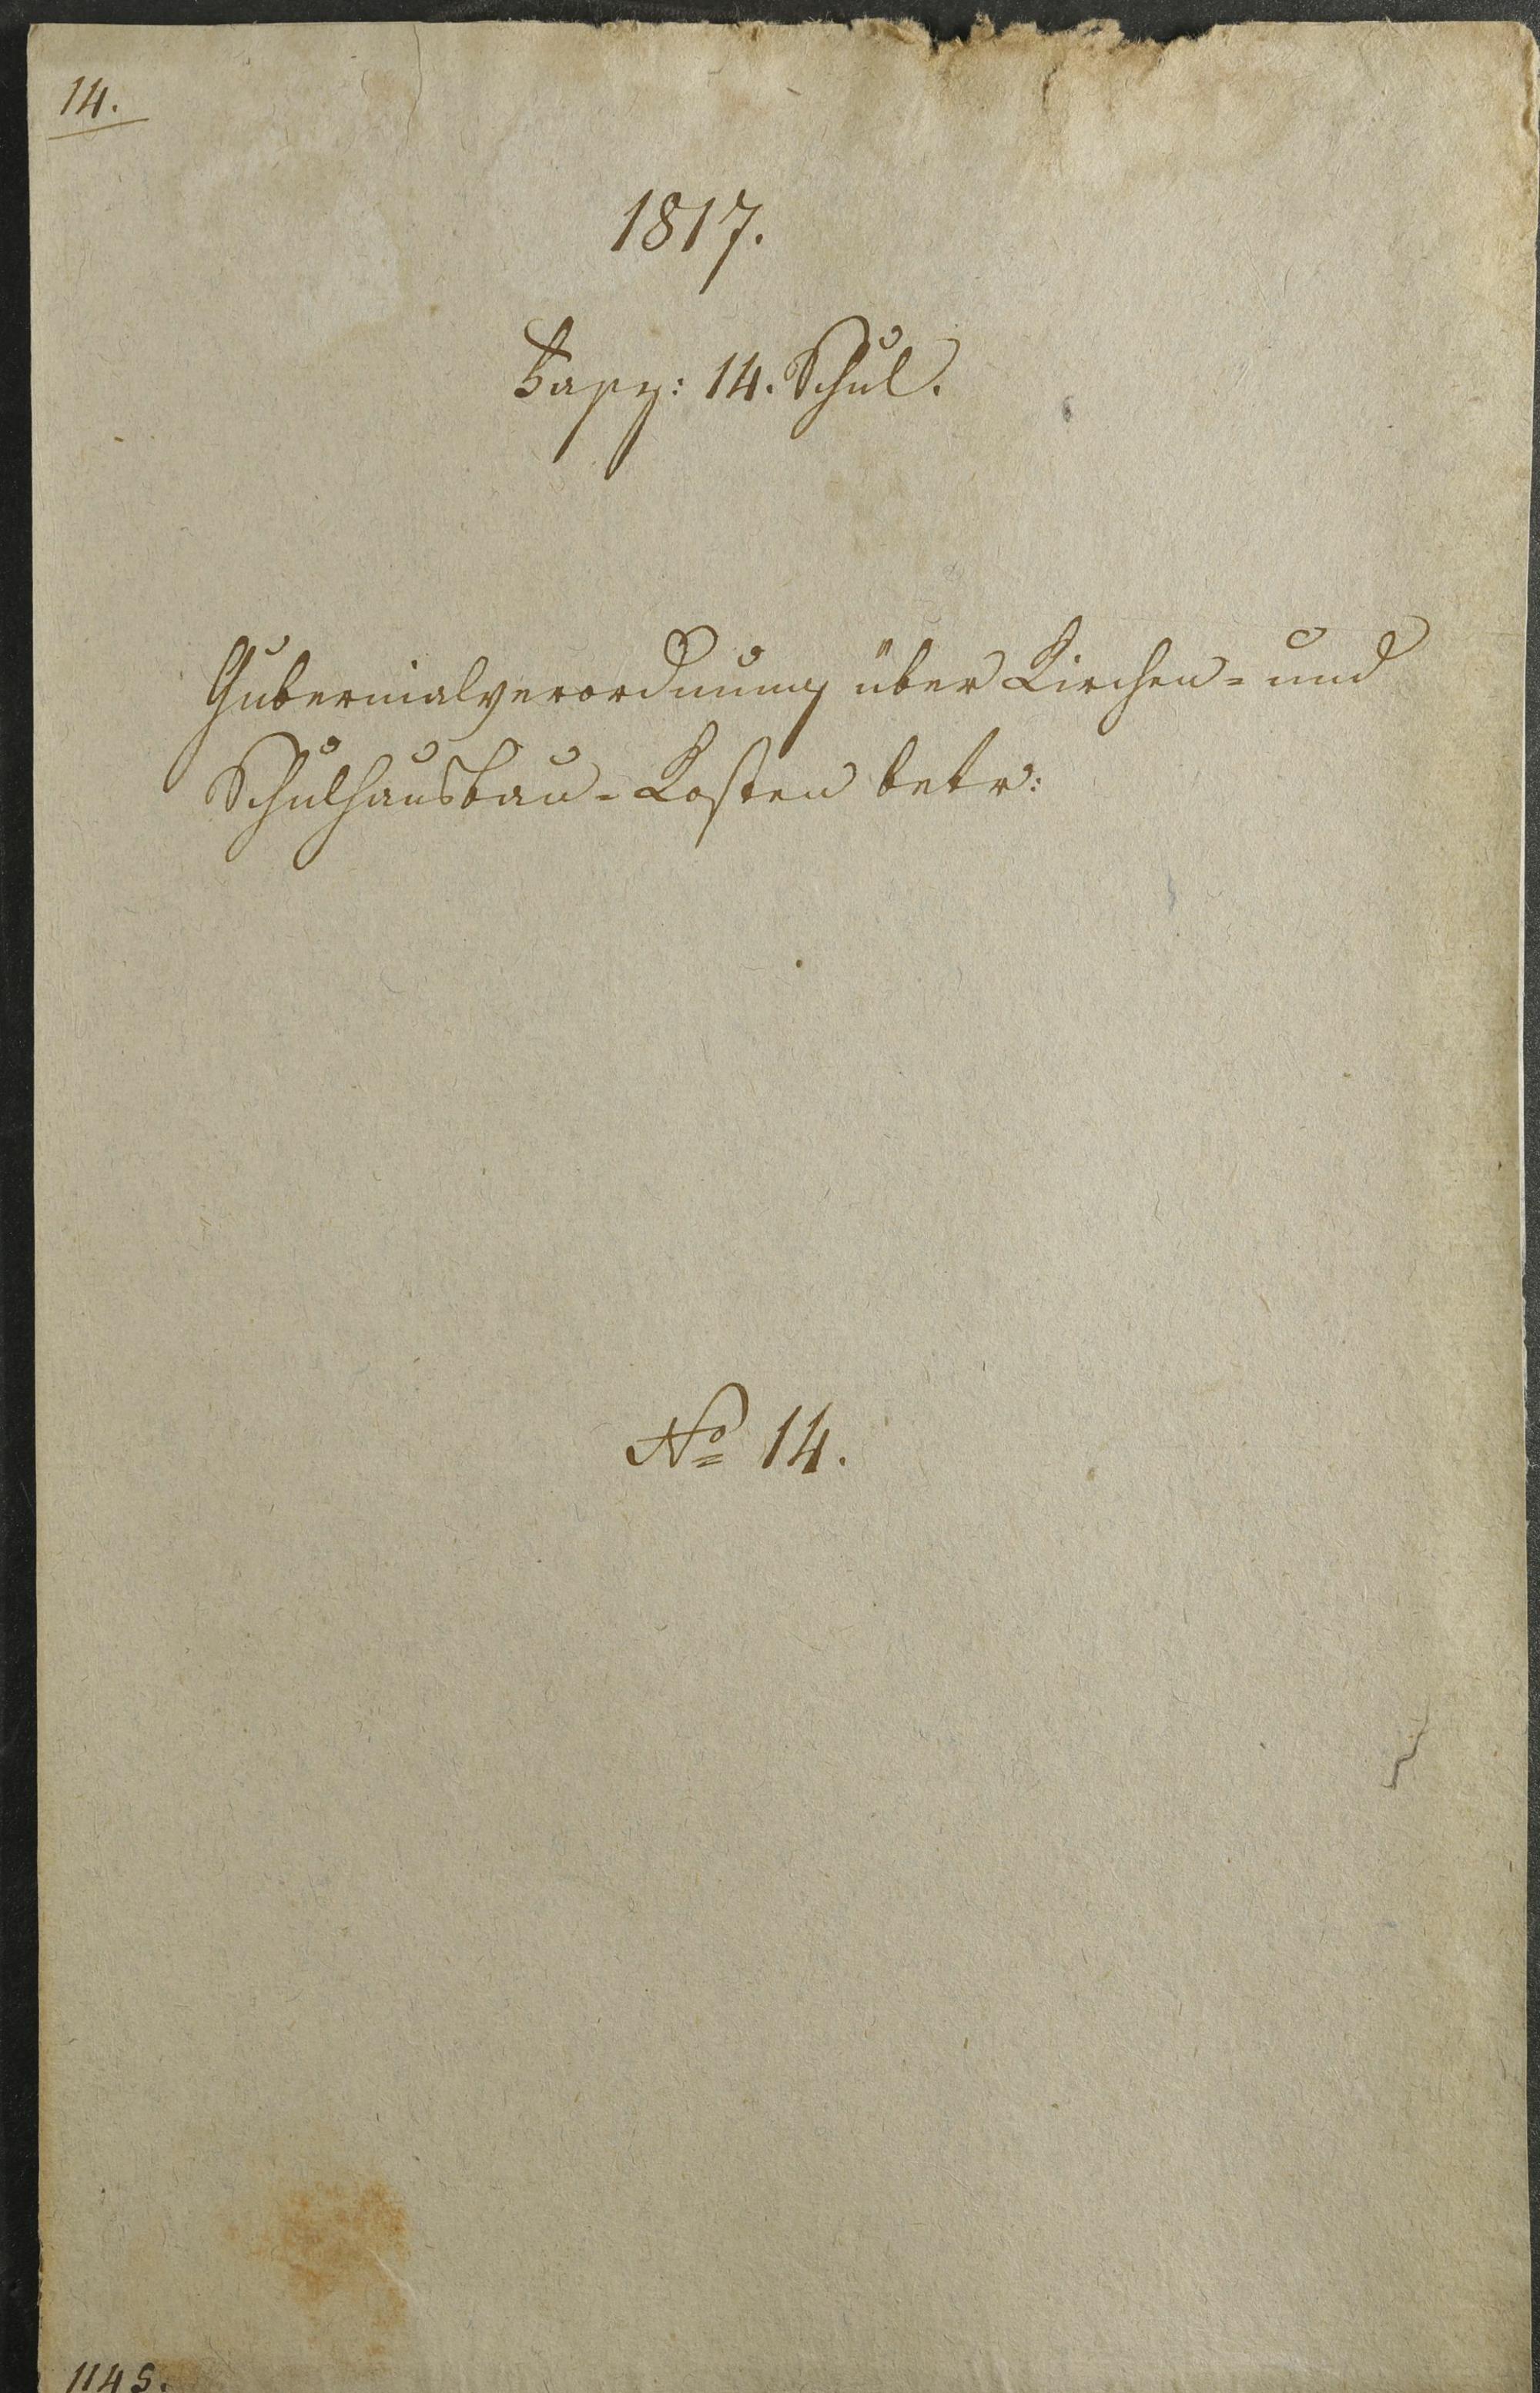 14.
1817.
Fasz: 14. Schul.
Gubernialverordnung über Kirchen- und
Schulhausbau-Kosten betr:
No 14.
1145.